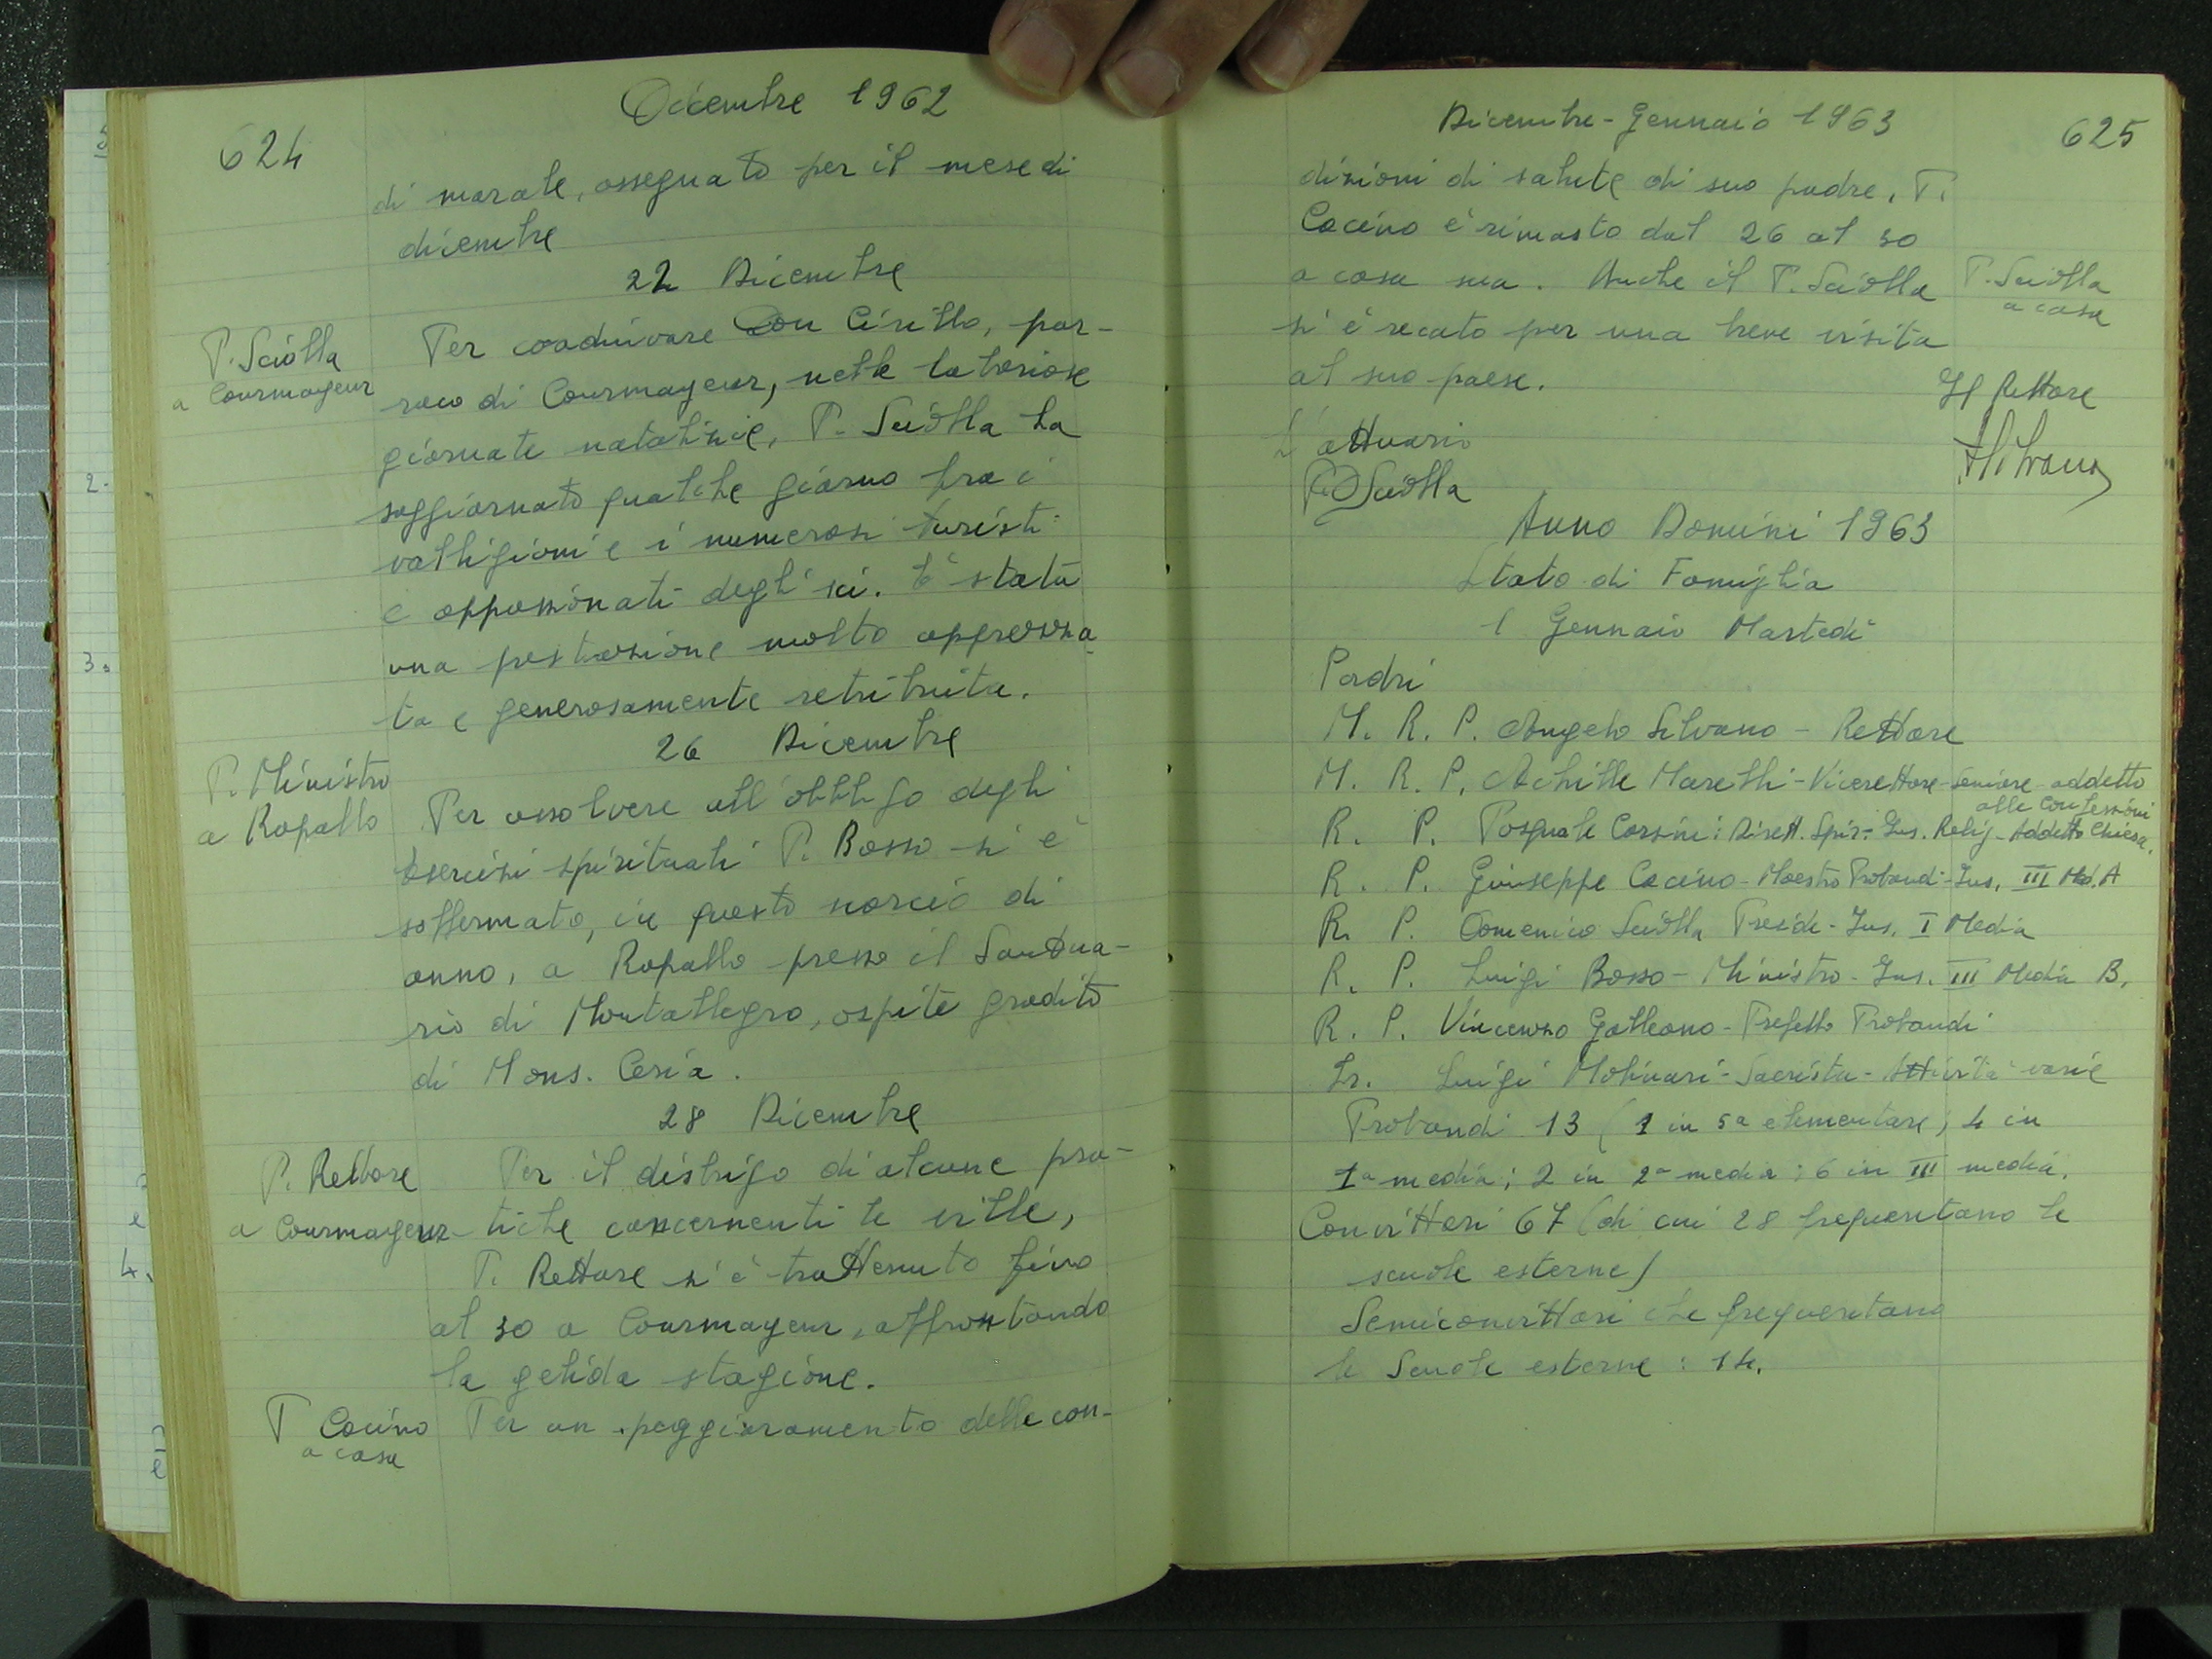 624
Dicembre 1962
di morale, assegnato per il mese di
dicembre
22 Dicembre
P. Sciolla
a Courmayeur
Per coadiuvare Don Cirillo, par-
roco di Courmayeur, nelle laboriose
giornate natalizie, P. Sciolla ha
soggiornato qualche giorno fra i
valligiani e i numerosi turisti
e appassionati degli sci. È stata
una prestazione molto apprezza-
ta e generosamente retribuita.
26 Dicembre
P. Ministro
a Rapallo
Per assolvere all'obbligo degli
Esercizi spirituali P. Bosso si è
soffermato, in questo scorcio di
anno, a Rapallo presso il Santua-
rio di Montallegro, ospite gradito
di Mons. Cesia.
28 Dicembre
P. Rettore
a Courmayeur
Per il disbrigo di alcune pra-
tiche concernenti le ville,
P. Rettore si è trattenuto fino
al 30 a Courmayeur, affrontando
la gelida stagione.
P Cocino
a casa
Per un peggioramento delle con-
Dicembre - Gennaio 1963
625
dizioni di salute di suo padre, P.
Cocino è rimasto dal 26 al 30
a casa sua. Anche il P. Sciolla
P. Sciolla
a casa
si è recato per una breve visita
al suo paese.
Il Rettore
L'attuario
P. D Sciolla
A Silvano
Anno Domini 1963
Stato di Famiglia
1 Gennaio Martedì
Padri
M. R. P. Angelo Silvano - Rettore
M. R. P. Achille Marelli - Vicerettore - Seniore - addetto
alle confessioni
R. P. Pasquale Corsini: Dirett. Spir. - Ins. Relig - Addetto Chiesa.
R. P. Giuseppe Cocino - Maestro Probandi - Ins. III Med. A
R. P. Domenico Sciolla Preside - Ins. I Media
R. P. Luigi Bosso - Ministro - Ins. III Media B.
R. P. Vincenzo Galleano - Prefetto Probandi
Fr. Luigi Molinari - Sacrista - Attività varie
Probandi 13 (1 in 5a elementare; 4 in
1a media; 2 in 2a media; 6 in III media.
Convittori 67 (di cui 28 frequentano le
scuole esterne)
Semiconvittori che frequentano
le Scuole esterne: 14.